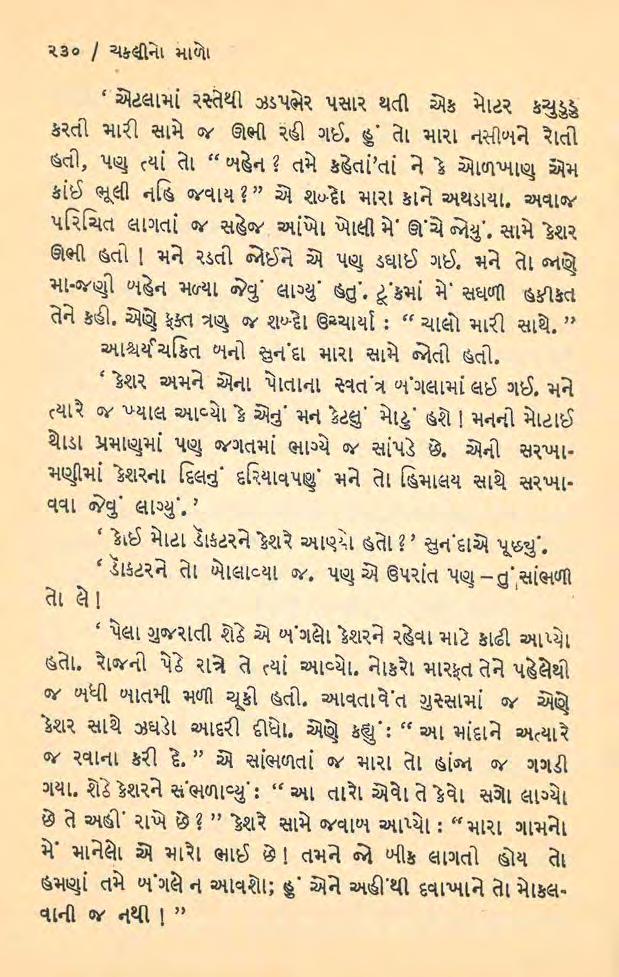 ૨૩૦ / ચકલીનો માળો
‘ એટલામાં રસ્તેથી ઝડપભેર પસાર થતી એક મોટર કચુડુડુ
કરતી મારી સામે જ ઊભી રહી ગઈ. હું તો મારા નસીબને રોતી
હતી, પણ ત્યાં તો “ બહેન ? તમે કહેતાં’તાં ને કે ઓળખાણ એમ
કાંઈ ભૂલી નહિ જવાય ? ” એ શબ્દો મારા કાને અથડાયા. અવાજ
પરિચિત લાગતાં જ સહેજ આંખો ખોલી મેં ઊંચે જોયું. સામે કેશર
ઊભી હતી ! મને રડતી જોઈને એ પણ ડઘાઈ ગઈ. મને તો જાણે
મા-જણી બહેન મળ્યા જેવું લાગ્યું હતું. ટૂંકમાં મેં સઘળી હકીકત
તેને કહી. એણે ફક્ત ત્રણ જ શબ્દો ઉચ્ચાર્યા : “ ચાલો મારી સાથે. ”
આશ્ચર્યચકિત બની સુનંદા મારા સામે જોતી હતી.
‘ કેશર અમને એના પોતાના સ્વતંત્ર બંગલામાં લઈ ગઈ. મને
ત્યારે જ ખ્યાલ આવ્યો કે એનું મન કેટલું મોટું હશે ! મનની મોટાઈ
થોડા પ્રમાણમાં પણ જગતમાં ભાગ્યે જ સાંપડે છે. એની સરખા-
મણીમાં કેશરના દિલનું દરિયાવપણું મને તો હિમાલય સાથે સરખા-
વવા જેવું લાગ્યું. ’
‘ કોઈ મોટા ડૉકટરને કેશરે આણ્યો હતો ? ’ સુનંદાએ પૂછ્યું.
‘ ડૉકટરને તો બોલાવ્યા જ. પણ એ ઉપરાંત પણ – તું સાંભળી
તો લે !
‘ પેલા ગુજરાતી શેઠે એ બંગલો કેશરને રહેવા માટે કાઢી આપ્યો
હતો. રોજની પેઠે રાત્રે તે ત્યાં આવ્યો. નોકરો મારફત તેને પહેલેથી
જ બધી બાતમી મળી ચૂકી હતી. આવતાવેંત ગુસ્સામાં જ એણે
કેશર સાથે ઝઘડો આદરી દીધો. એણે કહ્યું : “ આ માંદાને અત્યારે
જ રવાના કરી દે. ” એ સાંભળતાં જ મારા તો હાંજા જ ગગડી
ગયા. શેઠે કેશરને સંભળાવ્યું : “ આ તારો એવો તે કેવો સગો લાગ્યો
છે તે અહીં રાખે છે ? ” કેશરે સામે જવાબ આપ્યો : “ મારા ગામનો
મેં માનેલો એ મારો ભાઈ છે ! તમને જો બીક લાગતી હોય તો
હમણાં તમે બંગલે ન આવશો; હું એને અહીંથી દવાખાને તો મોકલ-
વાની જ નથી ! ”